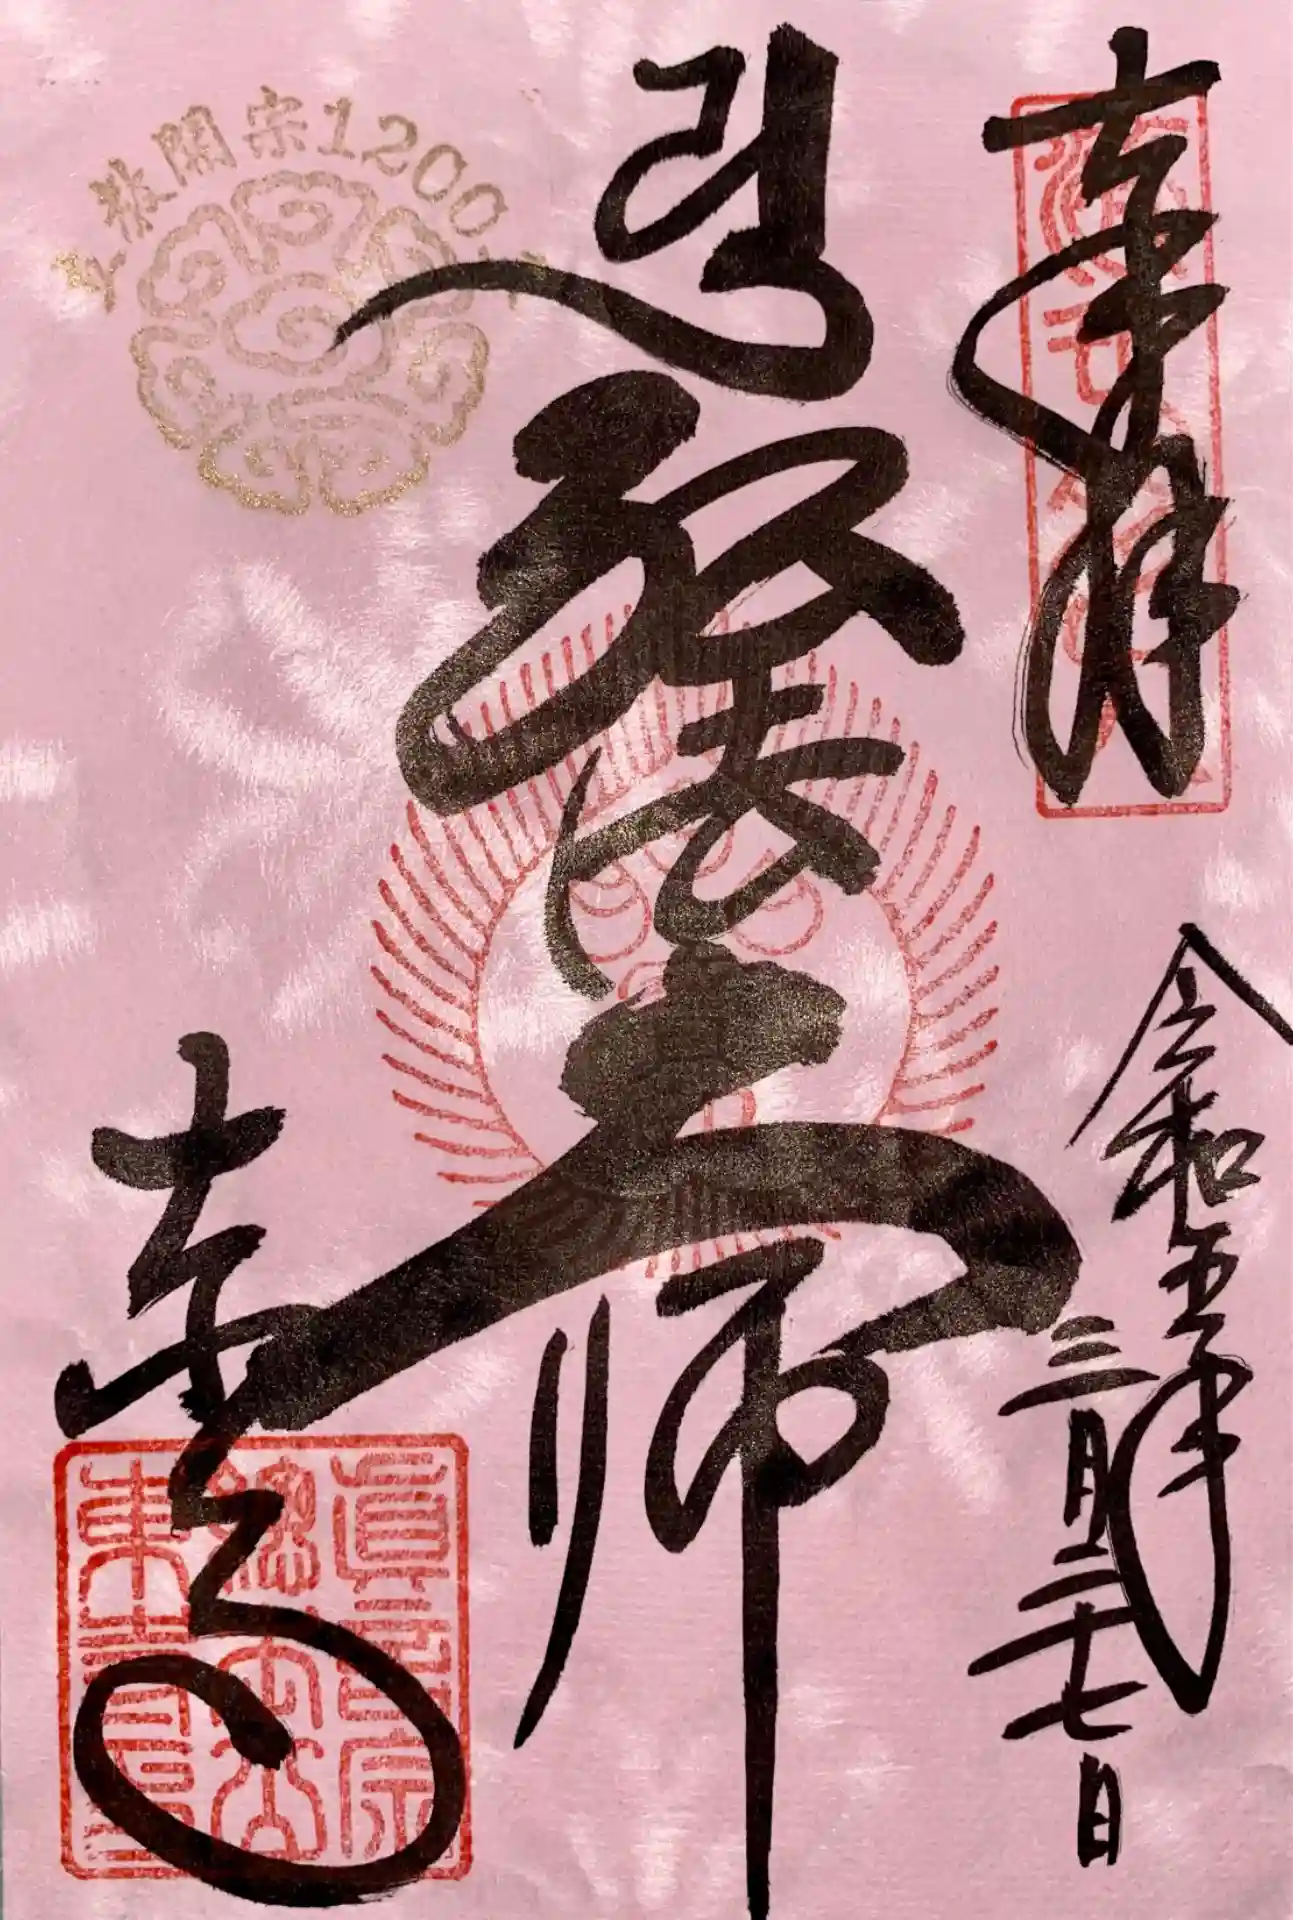 奉拝
令和五年
三月二十七日
弘法大師
立教開宗1200年
東寺
眞言宗
總本山